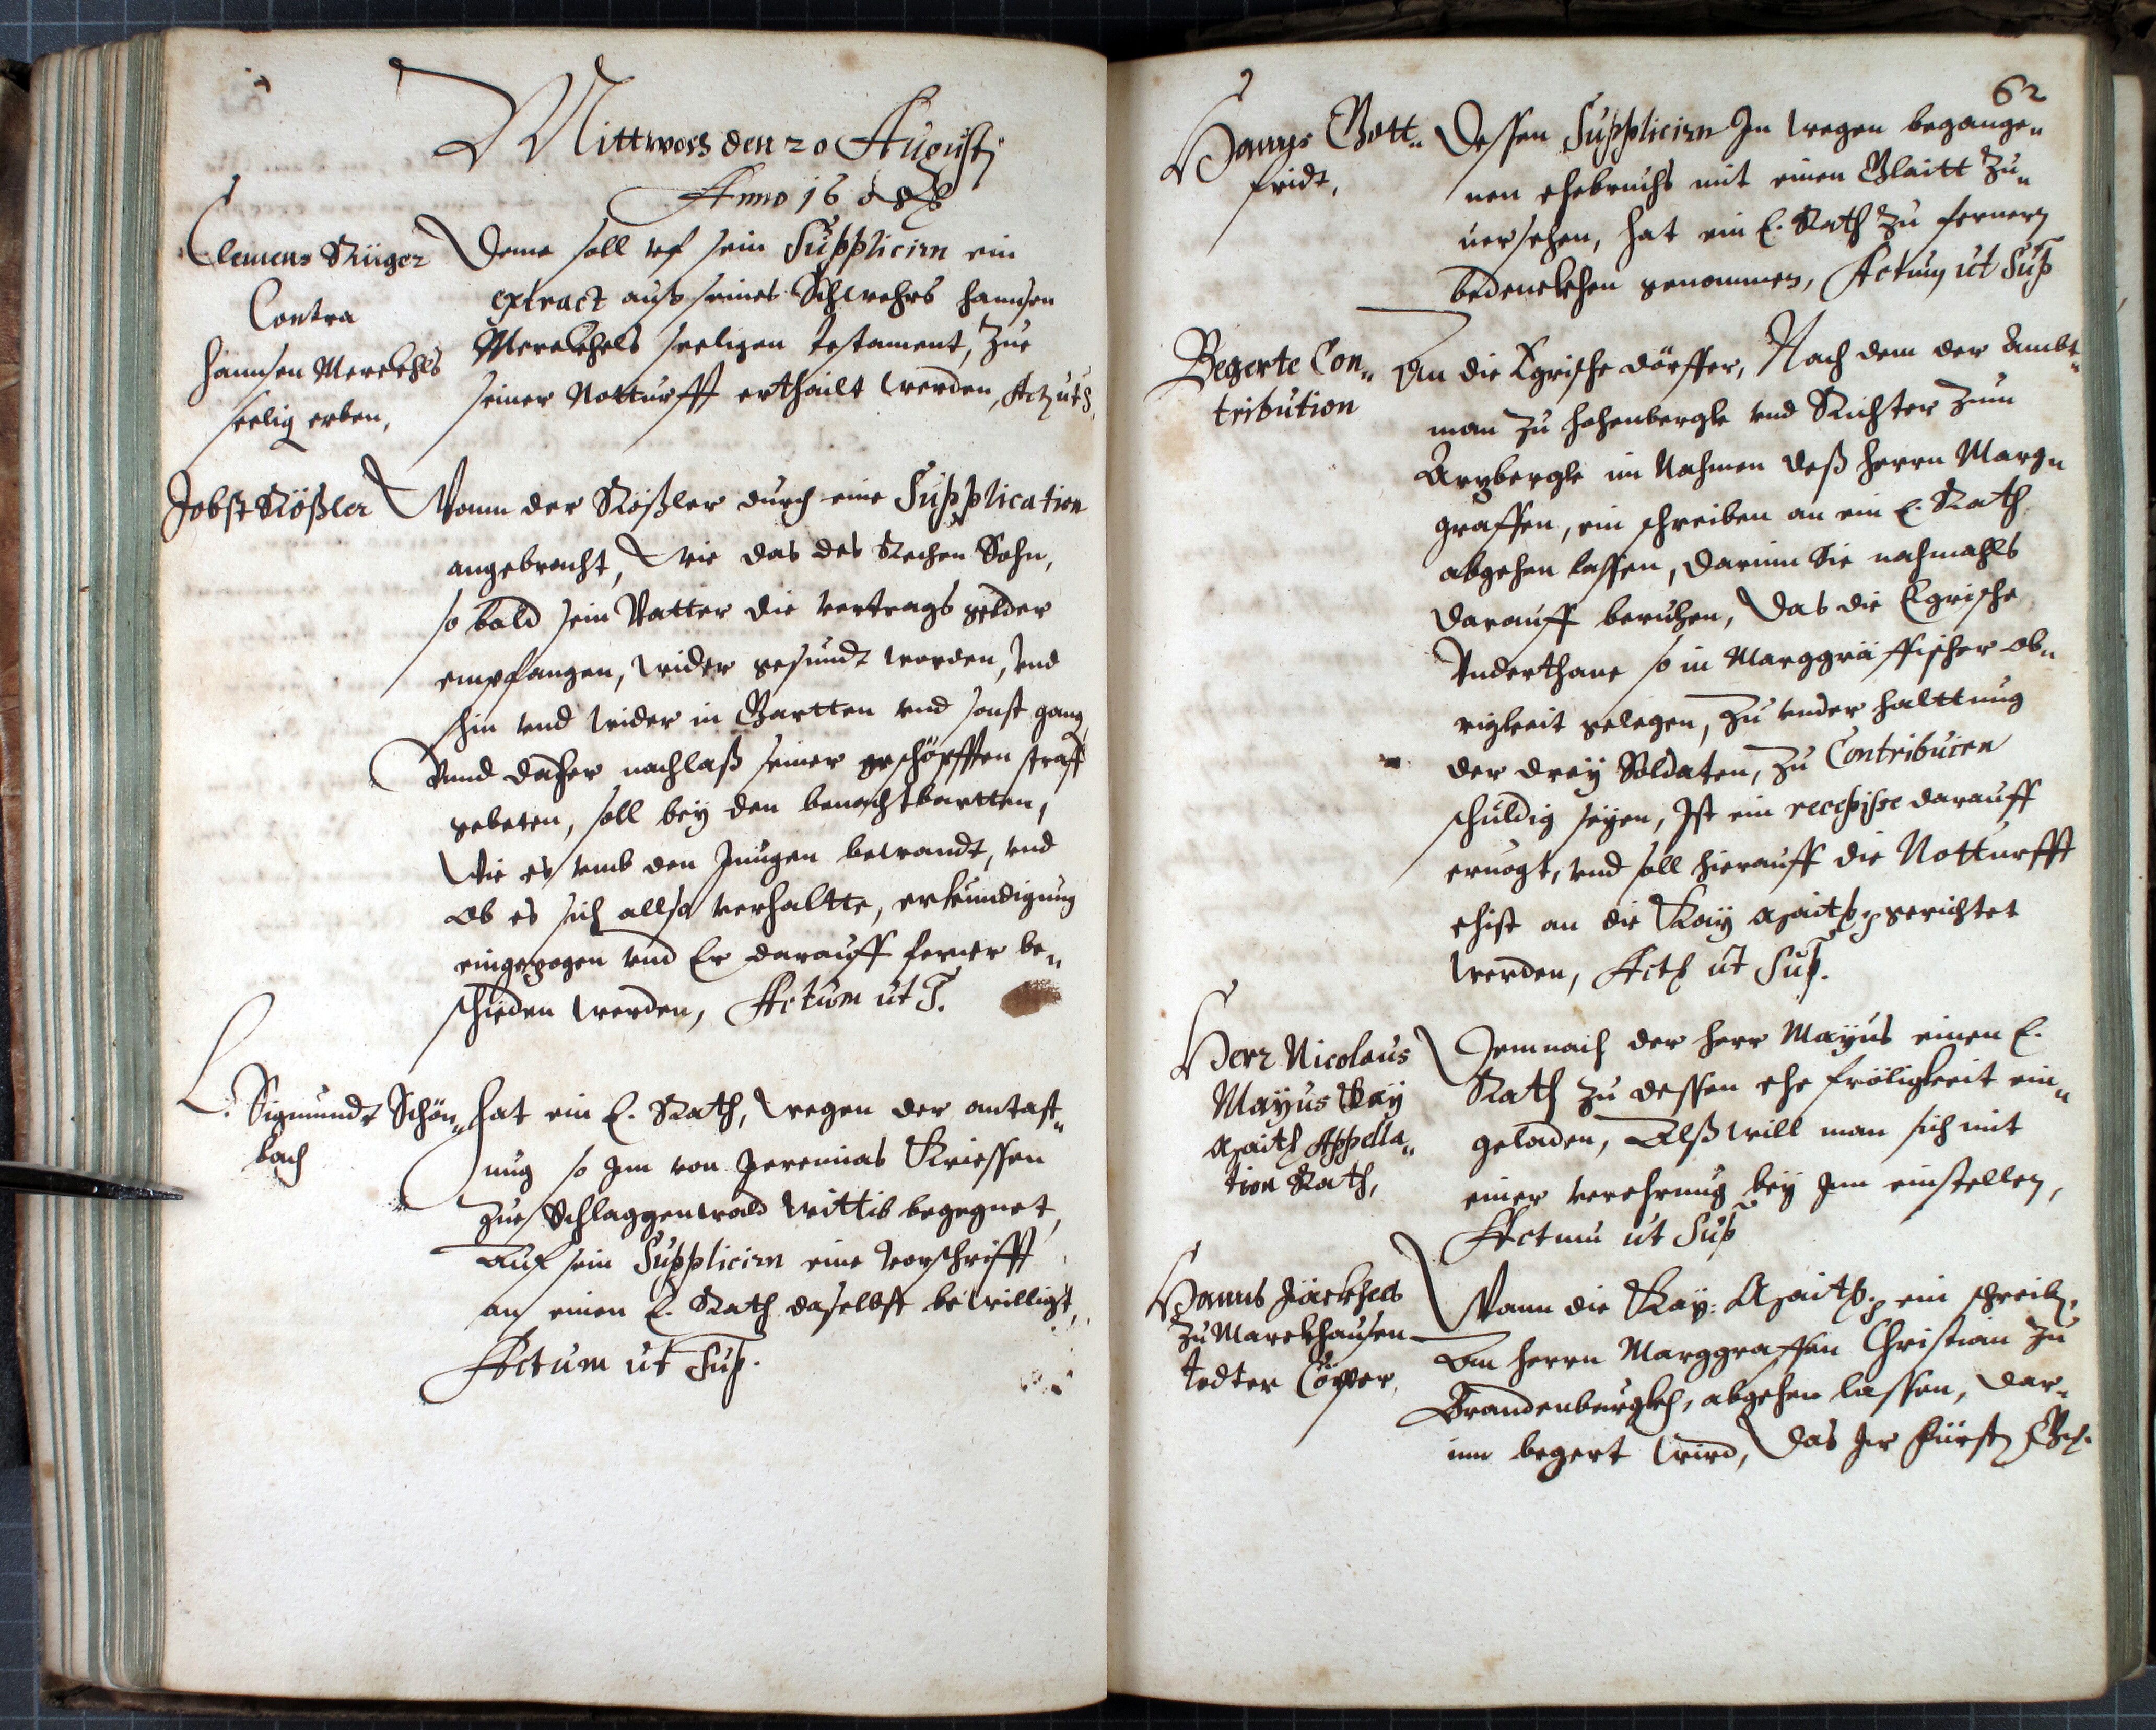 Mittwoch den 20 Augusti
Anno 16
Clemens Rüger
Contra
Hannsen Merckhls
seelig erben,
Deme soll uf sein Supplicirn ein
extract auß seines Schwehrs Hannsen
Merckhels seeligen Testament, Zue
seiner Notturfft erthailt werden, Act ut S.
Jobst Rößler
Wann der Rößler durch eine Supplication
angebracht, Wie das des Rechen Sohn,
so bald sein Vatter die vertrags gelder
empfangen, wider gesundt worden, vnd
hin vnd wider in Gartten vnd sonst gang
Vnnd daher nachlaß seiner geschöpfften straff
gebeten, soll bey den benachtbartten,
Wie es vmb den Jungen bewandt, vnd
Ob es sich allso verhaltte, erkundigung
eingezogen vnd Er darauff ferner be„
schieden werden, Actum ut S.
Sigmundt Schön„
bach
Hat ein E. Rath, wegen der antast„
ung so Jm von Jeremias Kriessen
zue Schlaggenwald wittib begegnet,
Auf sein Supplicirn eine vorschrifft
an einen E. Rath daselbst bewilligt,
Actum ut Sup.
62
Hanns Gott„
fridt,
Dessen Supplicirn Jn wegen begange„
nen ehebruchs mit einen Glaitt zu„
uersehen, hat ein E. Rath zu fernern
bedenckhen genommen, Actum ut Sup
Begerte Con„
tribution
An die Egrische dörffer, Nach dem der Ambt„
man zu Hohenbergk vnd Richter zum
Arzbergk im Nahmen deß Herrn Marg„
graffen, ein schreiben an ein E. Rath
abgehen lassen, darinn Sie nahmahls
darauff beruhen, das die Egrische
Vnderthane so in Marggräffischer ob„
rigkeit gelegen, zu vnder halttung
der drey Soldaten, zu Contribuiren
schuldig seyen, Jst ein recepisse darauff
eruogt, vnd soll hierauff die Notturfft
ehist an die Kay Maitt gerichtet
werden, Act ut Sup.
Herr Nicolaus
Mayus Kay
Maitt Appella„
tion Rath,
Demnach der Herr Mayus einen E.
Rath zu dessen ehe frölighkeit ein„
geladen, Alß will man sich mit
einer verehrung bey Jm einstellen,
Actum ut Sup
Hanns Jäckhels
zu Marckhausen
todter Cörper,
Wann die Kay: Maitt. ein schreib.
An Herrn Marggraffen Christian zu
Brandenburgkh, abgehen lassen, dar„
inn begert wird, das Jr Fürst. G.